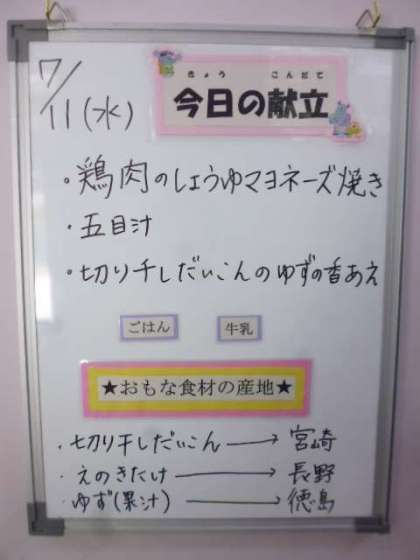 7/11(水)
きょう こんだて
今日の献立
・鶏肉のしょうゆマヨネーズ焼き
・五目汁
・切り干しだいこんのゆずの香あえ
ごはん 牛乳
★おもな食材の産地★
・切り干しだいこん→宮崎
・えのきたけ→長野
・ゆず(果汁)→徳島